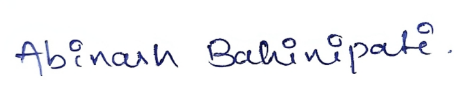 Abinash Bahinipati.